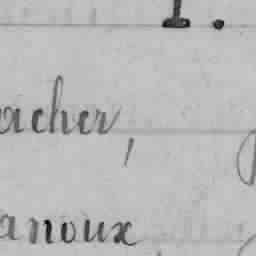 I.
acher,
anoux